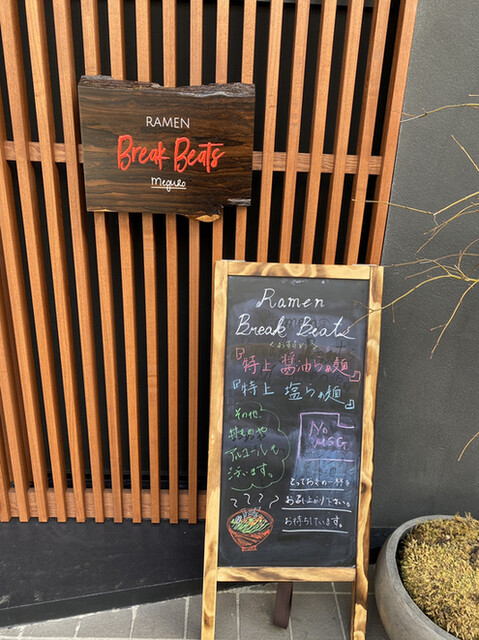 RAMEN
Break Beats
Meguro
Ramen
Break Beats
＜おすすめ＞
『特上 醤油らぁ麺』
『特上 塩らぁ麺』
その他
丼ものや
アルコールも
ございます。
No
MSG
とっておきの一杯を
お召し上がり下さい。
お待ちしています。